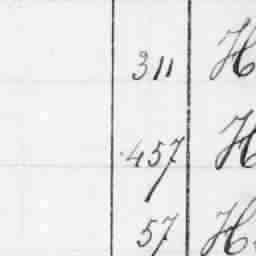 311 H
457 H
57 H